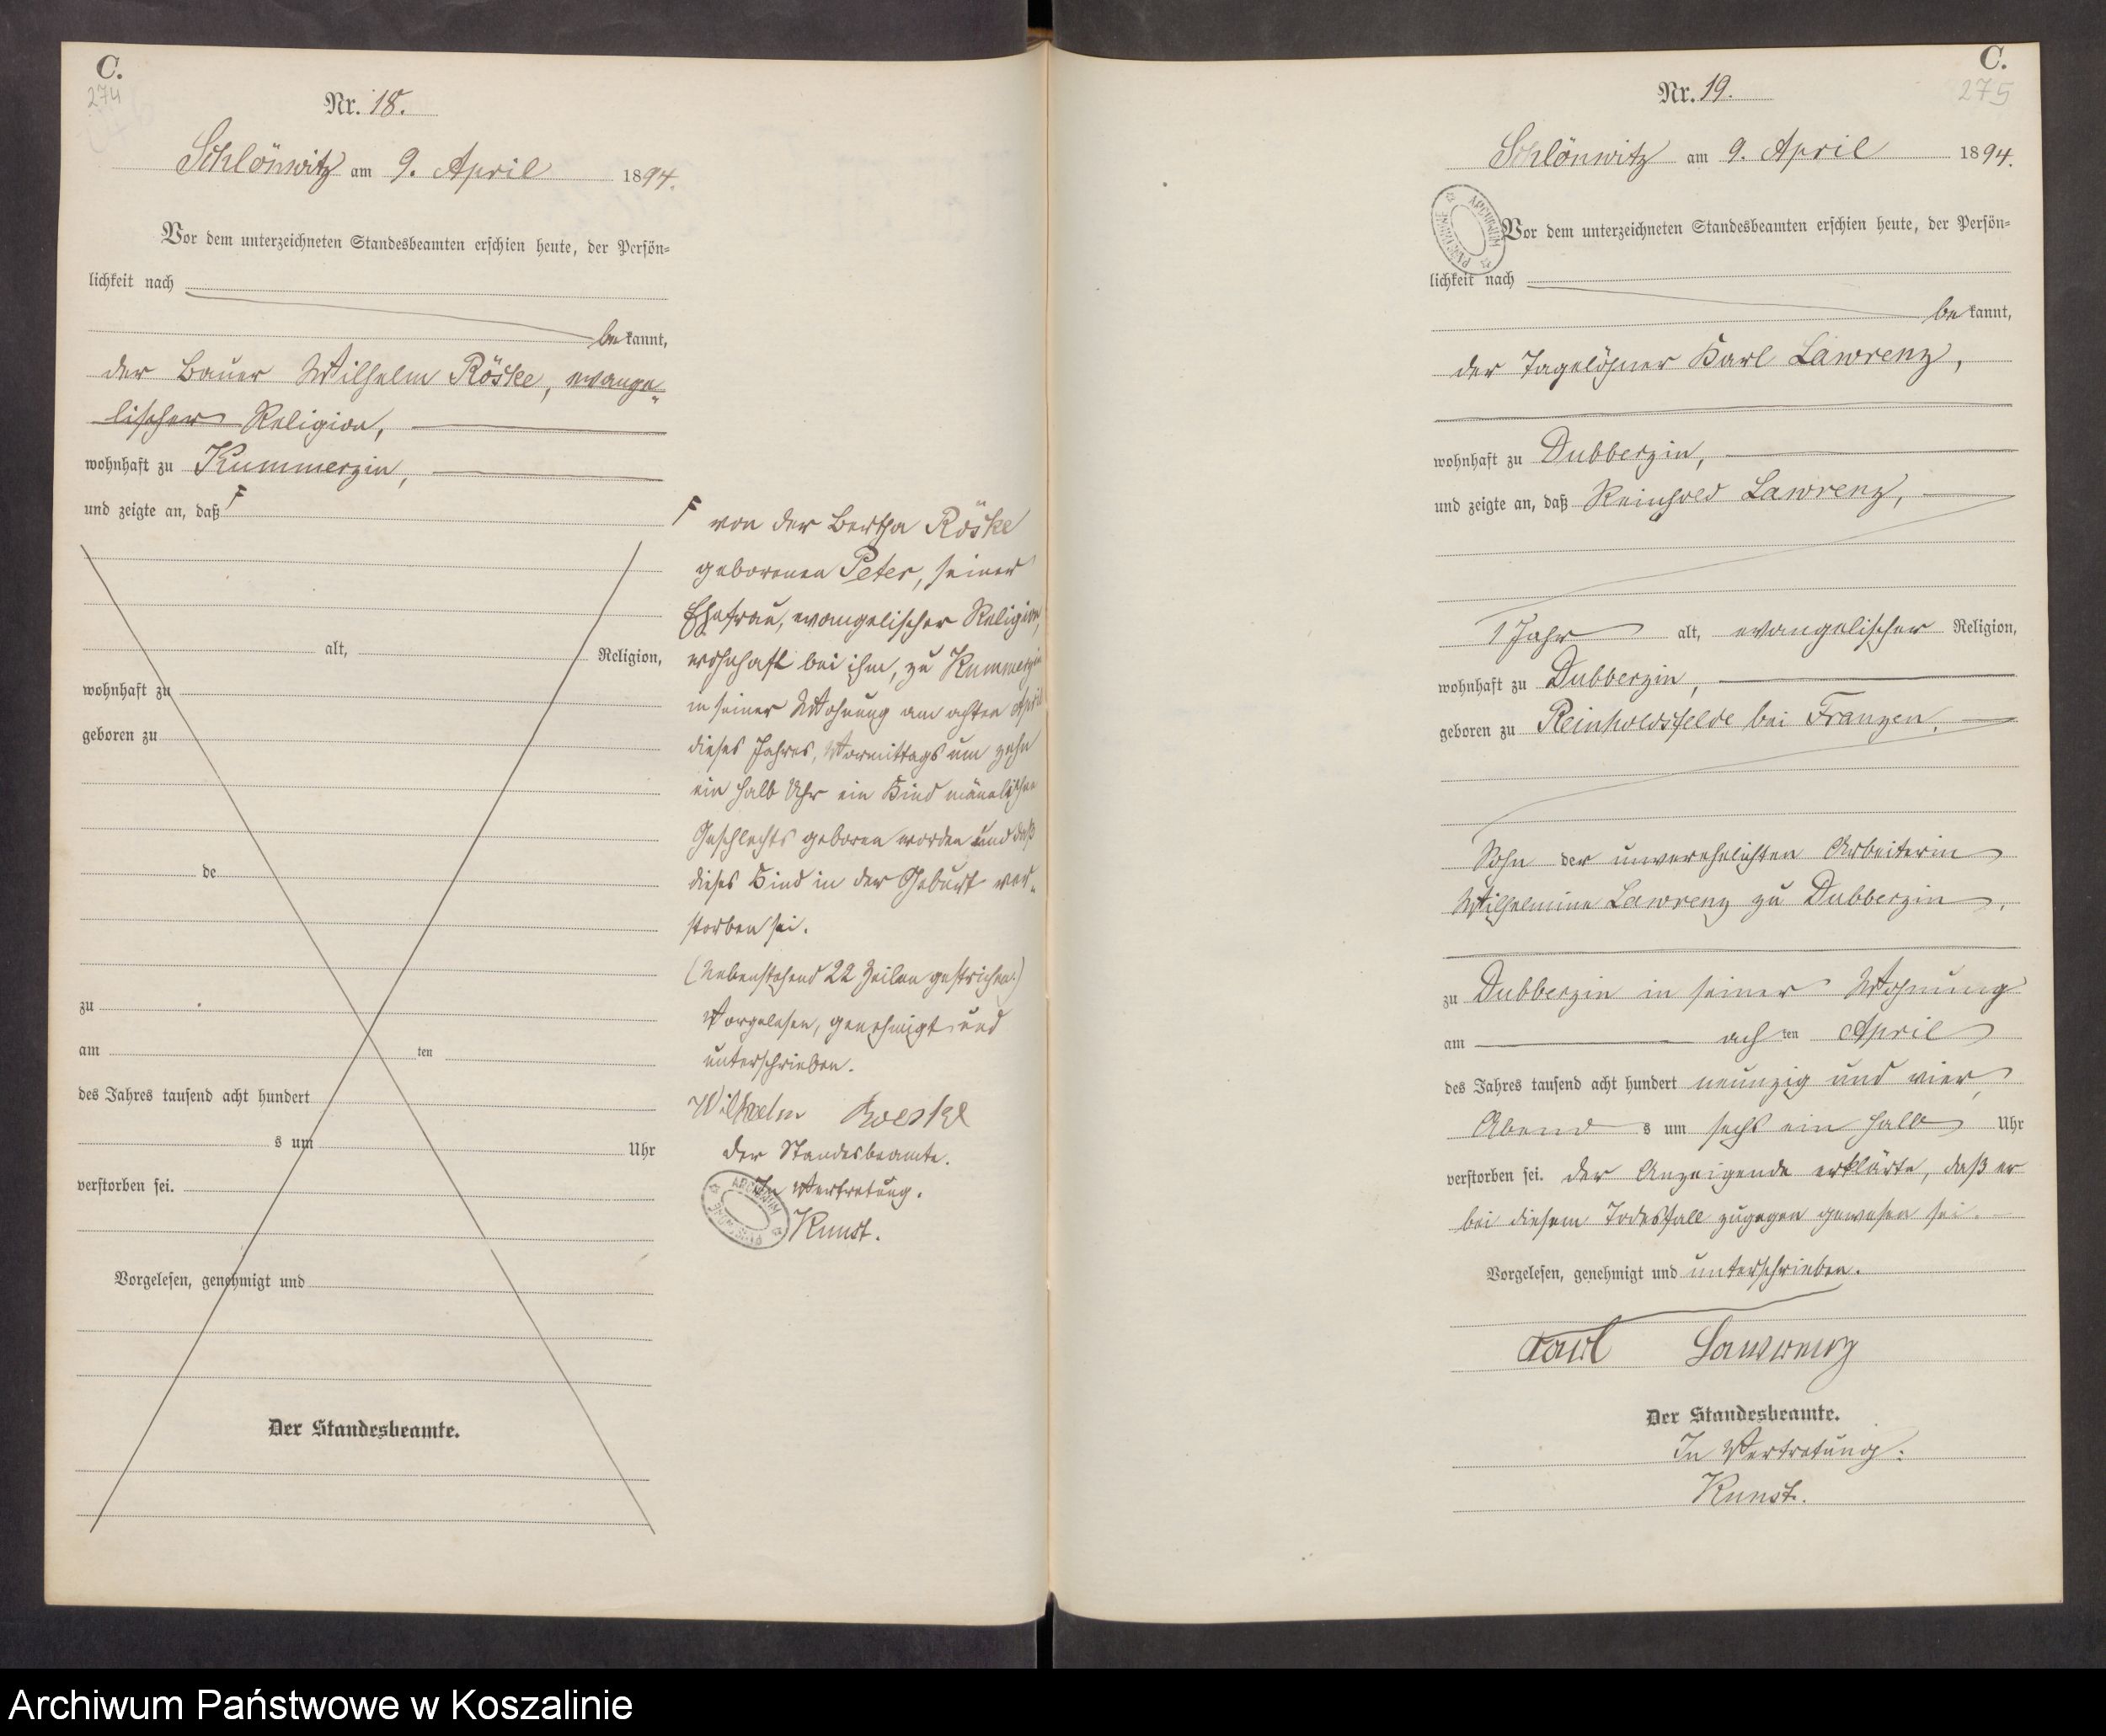 C.
274
Nr. 18.
Schlönwitz am 9. April 1894.
Vor dem unterzeichneten Standesbeamten erschien heute, der Persön=
lichkeit nach
bekannt,
der Bauer Wilhelm Röske, evange„
lischer Religion,
wohnhaft zu Kummerzin,
und zeigte an, daß F
alt, Religion,
wohnhaft zu
geboren zu
de
zu
am ten
des Jahres tausend acht hundert
s um Uhr
verstorben sei.
Vorgelesen, genehmigt und
Der Standesbeamte.
F von der Bertha Röske
geborenen Peter, seiner
Ehefrau, evangelischer Religion,
wohnhaft bei ihm, zu Kummerzin
in seiner Wohnung am achten April
dieses Jahres, Vormittags um zehn
ein halb Uhr ein Kind männlichen
Geschlechts geboren worden und daß
dieses Kind in der Geburt ver„
storben sei.
(Nebenstehend 22 Zeilen gestrichen.)
Vorgelesen, genehmigt und
unterschrieben.
Wilhelm Roeske
Der Standesbeamte.
In Vertretung.
Kunst.
ARCHIWUM PAŃSTWOWE
C.
275
Nr. 19.
Schlönwitz am 9. April 1894.
ARCHIWUM PAŃSTWOWE
Vor dem unterzeichneten Standesbeamten erschien heute, der Persön=
lichkeit nach
bekannt,
der Tagelöhner Karl Lawrenz,
wohnhaft zu Dubberzin,
und zeigte an, daß Reinhold Lawrenz,
1 Jahr alt, evangelischer Religion,
wohnhaft zu Dubberzin,
geboren zu Reinholdsfelde bei Franzen,
Sohn der unverehelichten Arbeiterin
Wilhelmine Lawrenz zu Dubberzin,
zu Dubberzin in seiner Wohnung
am achten April
des Jahres tausend acht hundert neunzig und vier,
Abends um sechs ein halb Uhr
verstorben sei. Der Anzeigende erklärte, daß er
bei diesem Todesfall zugegen gewesen sei.
Vorgelesen, genehmigt und unterschrieben.
Karl Lawrenz
Der Standesbeamte.
In Vertretung:
Kunst.
Archiwum Państwowe w Koszalinie